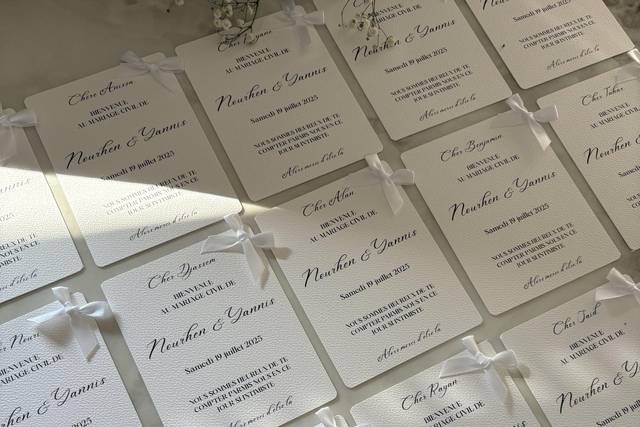 Cher Rayane
BIENVENUE
AU MARIAGE CIVIL DE
Nourhen & Yannis
Samedi 19 juillet 2025
NOUS SOMMES HEUREUX DE TE
COMPTER PARMIS NOUS EN CE
JOUR SI INTIMISTE
Alors merci d'être là
AU MARIAGE CIVIL DE
Nourhen & Yannis
Samedi 19 juillet 2025
NOUS SOMMES HEUREUX DE TE
COMPTER PARMIS NOUS EN CE
JOUR SI INTIMISTE
Alors merci d'être là
Samedi 19 juillet 2025
NOUS SOMMES HEUREUX DE TE
COMPTER PARMIS NOUS EN CE
JOUR SI INTIMISTE
Alors merci d'être là
BIENVENUE
AU MARIAGE CIVIL DE
Nourhen & Yannis
Samedi 19 juillet 2025
NOUS SOMMES HEUREUX DE TE
COMPTER PARMIS NOUS EN CE
JOUR SI INTIMISTE
Alors merci d'être là
Cher Alan
BIENVENUE
AU MARIAGE CIVIL DE
Nourhen & Yannis
Samedi 19 juillet 2025
NOUS SOMMES HEUREUX DE TE
COMPTER PARMIS NOUS EN CE
JOUR SI INTIMISTE
Alors merci d'être là
Cher Benjamin
BIENVENUE
AU MARIAGE CIVIL DE
Nourhen & Yannis
Samedi 19 juillet 2025
NOUS SOMMES HEUREUX DE TE
COMPTER PARMIS NOUS EN CE
JOUR SI INTIMISTE
Alors merci d'être là
Cher
BIENVENUE
AU MARIAGE
Nourhen
Samedi 19
NOUS SOMMES
COMPTER
BIENVENUE
AU MARIAGE CIVIL DE
& Yannis
Cher Djassem
BIENVENUE
AU MARIAGE CIVIL DE
Nourhen & Yannis
Samedi 19 juillet 2025
NOUS SOMMES HEUREUX DE TE
COMPTER PARMIS NOUS EN CE
JOUR SI INTIMISTE
Alors merci d'être là
Cher Rayan
BIENVENUE
AU MARIAGE CIVIL DE
Cher
BIENVENUE
AU MARIAGE CIVIL DE
Nourhen &